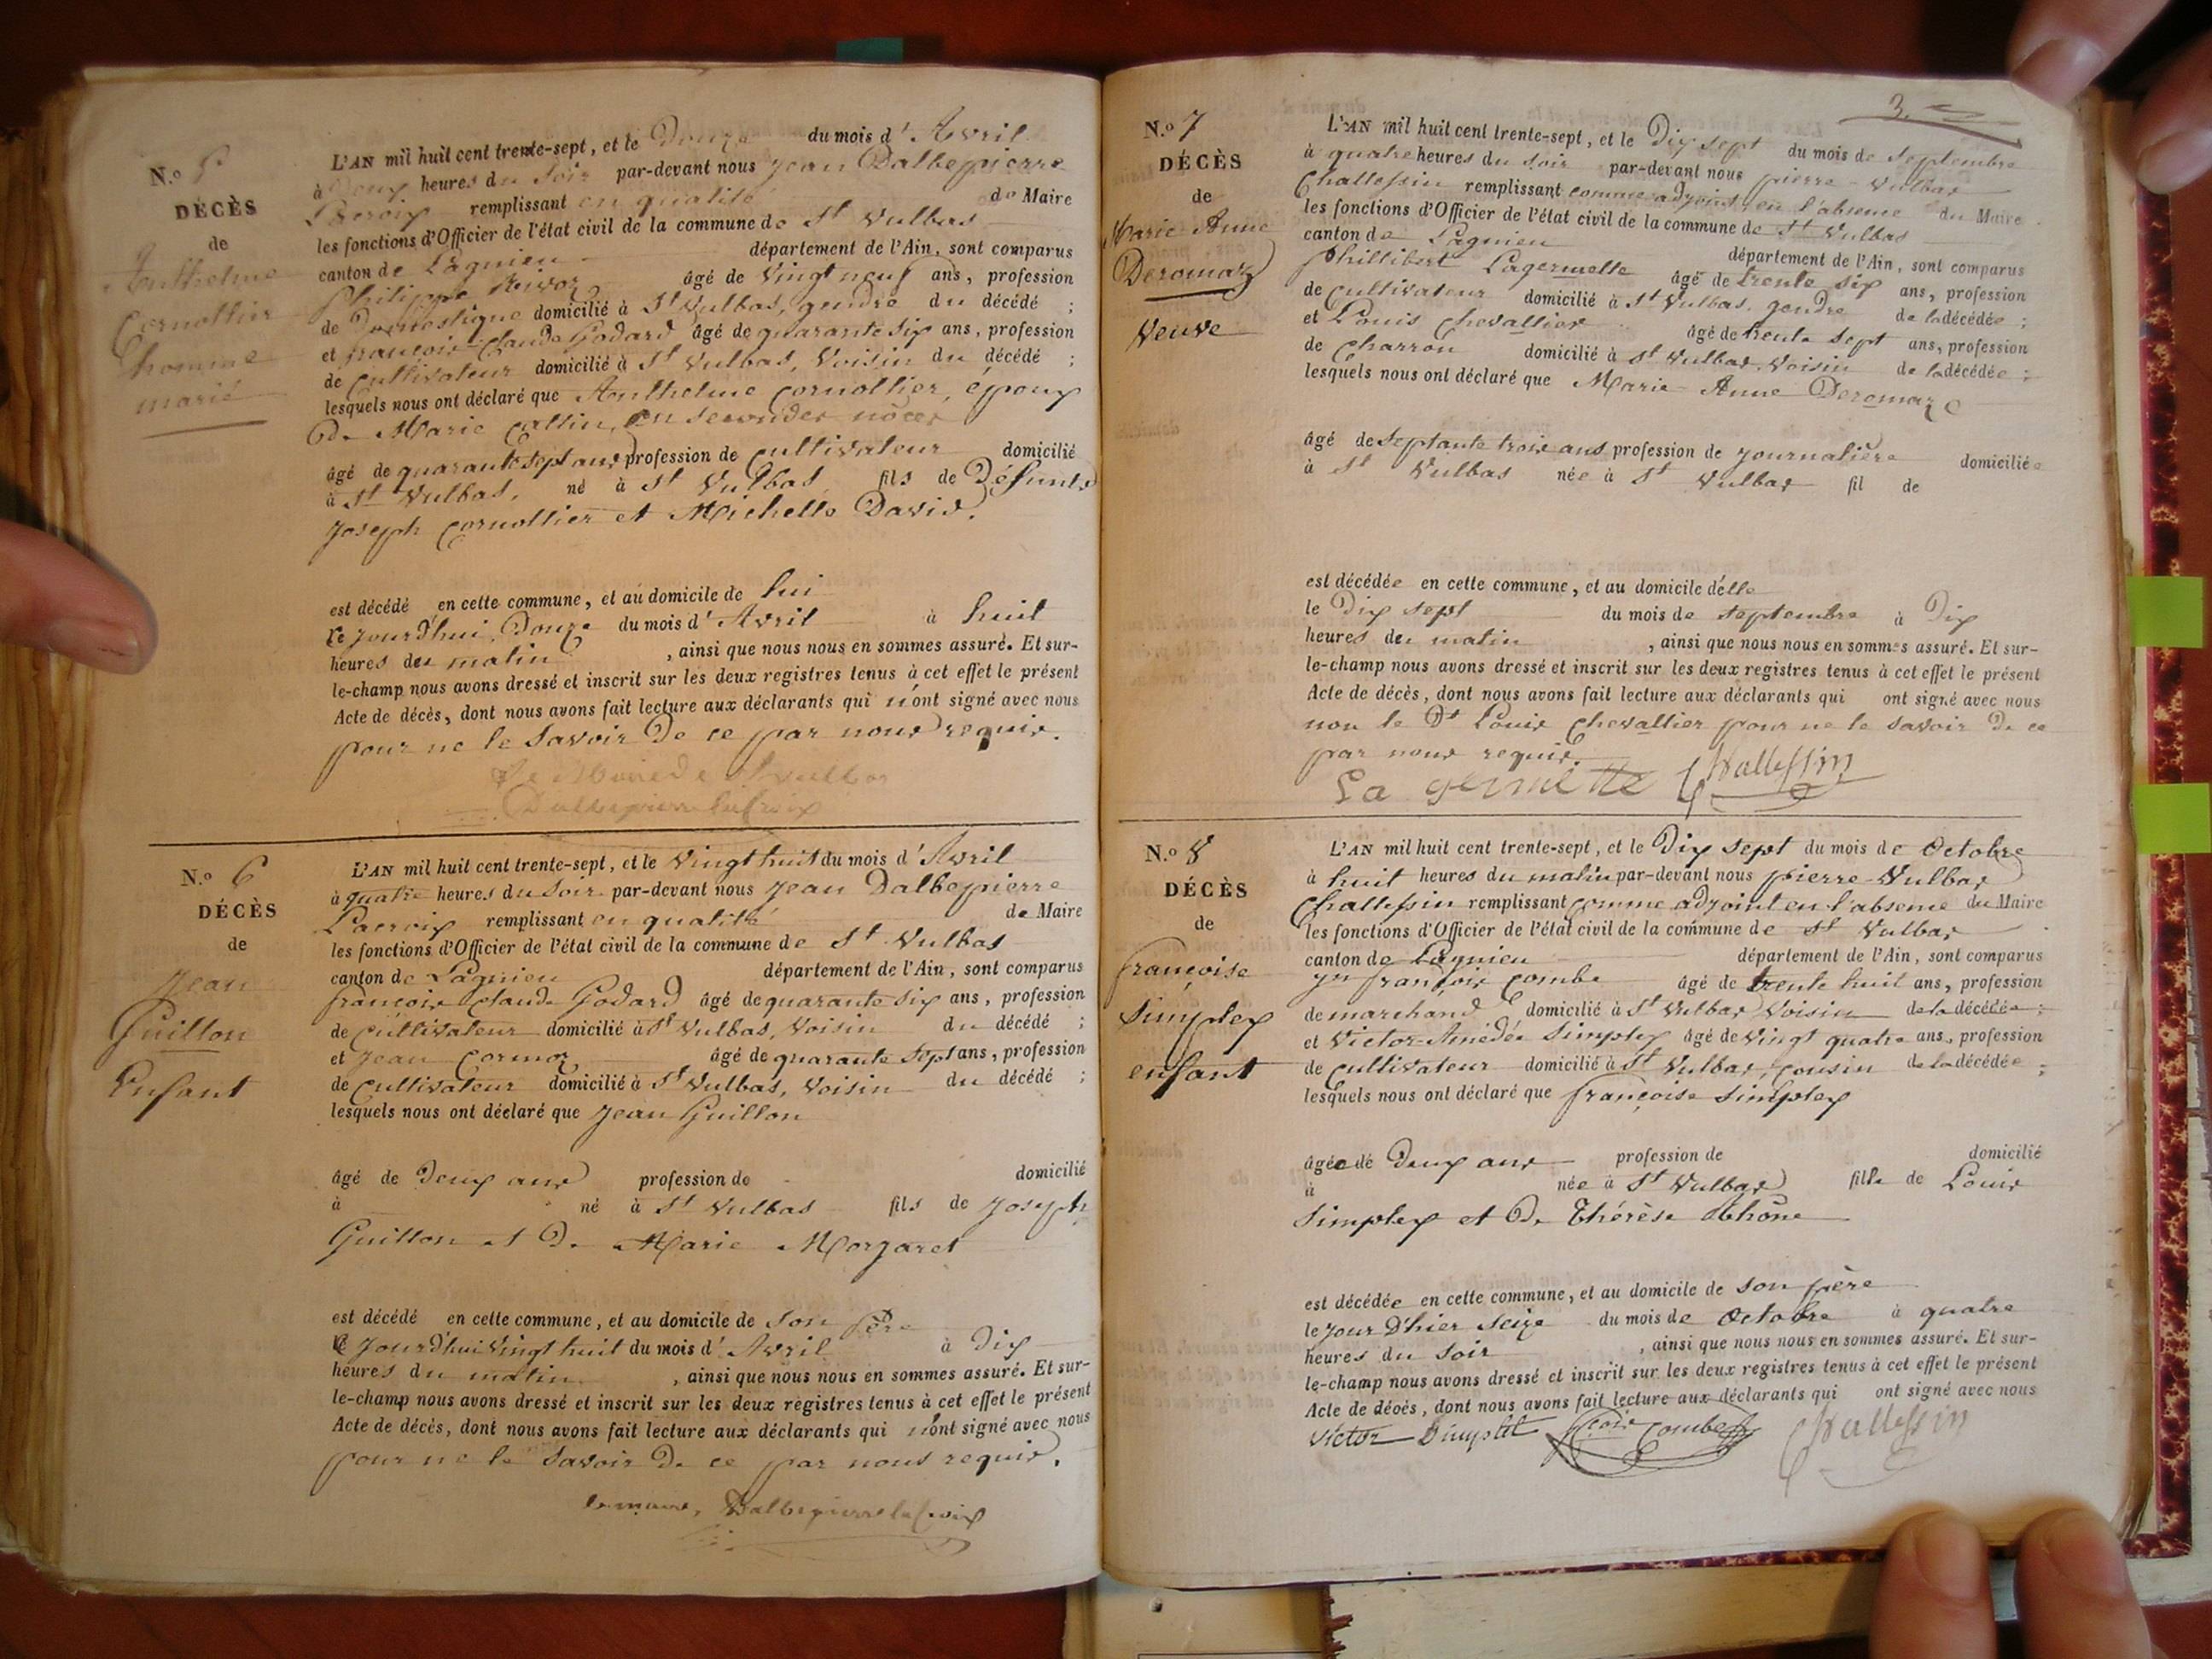 N.o 5
DÉCÈS
de
Anthelme
Cornollier
homme
marié
L'AN mil huit cent trente-sept, et le Douze du mois d'Avril
à Deux heures du Soir par-devant nous Jean Dalbepierre
Lacroix remplissant en qualité de Maire
les fonctions d'Officier de l'état civil de la commune de St Vulbas
canton de Lagnieu département de l'Ain, sont comparus
Philippe âgé de Vingt neuf ans, profession
de Domestique domicilié à St Vulbas, gendre du décédé ;
et françois Claude Godard âgé de quarante six ans, profession
de Cultivateur domicilié à St Vulbas, Voisin du décédé ;
lesquels nous ont déclaré que Anthelme Cornollier, époux
De Marie Cattin, En secondes nôces
âgé de quarante sept ans profession de Cultivateur domicilié
à St Vulbas, né à St Vulbas fils de Défunts
Joseph Cornollier et Michelle David.
est décédé en cette commune, et au domicile de lui
le jourd'hui Douze du mois d'Avril à huit
heures du matin, ainsi que nous nous en sommes assuré. Et sur-
le-champ nous avons dressé et inscrit sur les deux registres tenus à cet effet le présent
Acte de décès, dont nous avons fait lecture aux déclarants qui n'ont signé avec nous
pour ne le Savoir De ce par nous requis.
Le Maire de St Vulbas
Dalbepierre Lacroix
N.o 6
DÉCÈS
de
Jean
Guillon
Enfant
L'AN mil huit cent trente-sept, et le Vingt huit du mois d'Avril
à quatre heures du Soir par-devant nous Jean Dalbepierre
Lacroix remplissant en qualité de Maire
les fonctions d'Officier de l'état civil de la commune de St Vulbas
canton de Lagnieu département de l'Ain, sont comparus
françois Claude Godard âgé de quarante six ans, profession
de Cultivateur domicilié à St Vulbas, Voisin du décédé ;
et Jean Cormoz âgé de quarante sept ans, profession
de Cultivateur domicilié à St Vulbas, Voisin du décédé ;
lesquels nous ont déclaré que Jean Guillon
âgé de Deux ans profession de domicilié
à né à St Vulbas fils de Joseph
Guillon et De Marie Morgaret
est décédé en cette commune, et au domicile de Son Père
le Jourd'hui Vingt huit du mois d'Avril à Dix
heures du matin, ainsi que nous nous en sommes assuré. Et sur-
le-champ nous avons dressé et inscrit sur les deux registres tenus à cet effet le présent
Acte de décès, dont nous avons fait lecture aux déclarants qui n'ont signé avec nous
pour ne le Savoir De ce par nous requis.
le maire, Dalbepierre lacroix
3.
N.o 7
DÉCÈS
de
Marie Anne
Deromaz
Veuve
L'AN mil huit cent trente-sept, et le Dix sept du mois de Septembre
à quatre heures du Soir par-devant nous pierre Vulbas
Challessin remplissant comme adjoint en l'absence du Maire
les fonctions d'Officier de l'état civil de la commune de St Vulbas
canton de Lagnieu département de l'Ain, sont comparus
Phillibert Lagermette âgé de trente six ans, profession
de Cultivateur domicilié à St Vulbas, gendre de la décédée ;
et Louis Chevallier âgé de trente sept ans, profession
de Charron domicilié à St Vulbas, Voisin de la décédée ;
lesquels nous ont déclaré que Marie Anne Deromaz
âgé de septante trois ans profession de journalière domiciliée
à St Vulbas née à St Vulbas fil de
est décédée en cette commune, et au domicile d'elle
le Dix sept du mois de septembre à Dix
heures du matin, ainsi que nous nous en sommes assuré. Et sur-
le-champ nous avons dressé et inscrit sur les deux registres tenus à cet effet le présent
Acte de décès, dont nous avons fait lecture aux déclarants qui ont signé avec nous
non le Dt Louis Chevallier pour ne le savoir De ce
par nous requis.
La germette Challessin
N.o 8
DÉCÈS
de
françoise
Simplex
enfant
L'AN mil huit cent trente-sept, et le Dix sept du mois de Octobre
à huit heures du matin par-devant nous pierre Vulbas
Challessin remplissant comme adjoint en l'absence du Maire
les fonctions d'Officier de l'état civil de la commune de St Vulbas
canton de Lagnieu département de l'Ain, sont comparus
Jn françois Combe âgé de trente huit ans, profession
de marchand domicilié à St Vulbas Voisin de la décédée ;
et Victor Amédée Simplex âgé de Vingt quatre ans, profession
de Cultivateur domicilié à St Vulbas, cousin de la décédée ;
lesquels nous ont déclaré que françoise Simplex
âgée de Deux ans profession de domicilié
à née à St Vulbas fille de Louis
Simplex et De Thérèse Rhône
est décédée en cette commune, et au domicile de son père
le jour D'hier seize du mois de Octobre à quatre
heures du Soir, ainsi que nous nous en sommes assuré. Et sur-
le-champ nous avons dressé et inscrit sur les deux registres tenus à cet effet le présent
Acte de décès, dont nous avons fait lecture aux déclarants qui ont signé avec nous
Victor Simplet Combe Challessin